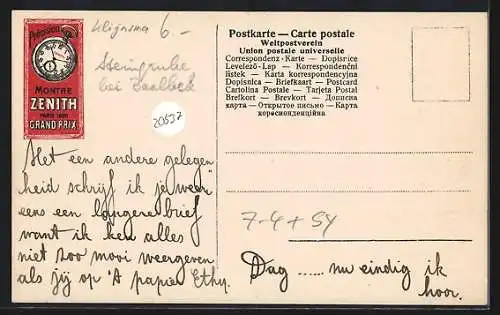 Précision
MONTRE
ZENITH
PARIS 1900
GRAND PRIX
6.-
Steingrube
bei Baalbek
20537
Met een andere gelegen
heid schrijf ik je weer
eens een langere brief
want ik ken alles
niet zoo mooi weergeven
als jij op 't papier Ethy.
Postkarte — Carte postale
Weltpostverein
Union postale universelle
Correspondenz-Karte — Dopisnice
Levelező-Lap — Korrespondenční
lístek — Karta korrespondencyjna
Dopisnica — Briefkaart — Postcard
Cartolina Postale — Tarjeta Postal
Brefkort — Brevkort — Дописна
карта — Открытое письмо — Карта
кореспонденційна
7-4 + SY
Dag ...... nu eindig ik
hoor.